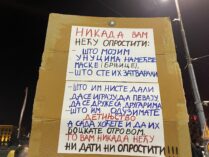 НИКАДА ВАМ
НЕЋУ ОПРОСТИТИ:
- ШТО МОЈИМ
УНУЦИМА НАМЕЋЕТЕ
МАСКЕ (БРЊИЦЕ)
- ШТО СТЕ ИХ ЗАТВАРАЛИ
- ШТО ИМ НИСТЕ ДАЛИ
ДА СЕ ИГРАЈУ, ДА ПЕВАЈУ
ДА СЕ ДРУЖЕ СА ДРУГАРИМА
- ШТО ИМ ОДУЗИМАТЕ
ДЕТИЊСТВО
А САДА ХОЋЕТЕ И ДА ИХ
БОЦКАТЕ ОТРОВОМ.
ТО ВАМ НИКАДА НЕЋУ
НИ ДАТИ НИ ОПРОСТИТИ!!!